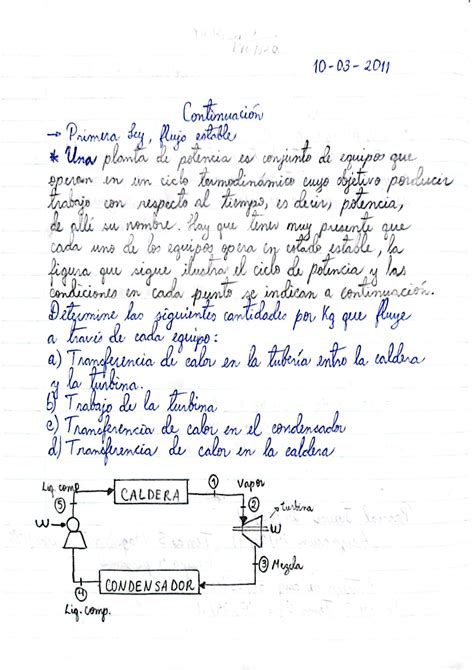 10-03-2011
Continuación
→ Primera Ley, flujo estable
* Una planta de potencia es conjunto de equipos que
operan en un ciclo termodinámico cuyo objetivo producir
trabajo con respecto al tiempo, es decir, potencia,
de allí su nombre. Hay que tener muy presente que
cada uno de los equipos opera en estado estable, la
figura que sigue ilustra el ciclo de potencia y las
condiciones en cada punto se indican a continuación.
Determine las siguientes cantidades por Kg que fluye
a través de cada equipo:
a) Transferencia de calor en la tubería entre la caldera
y la turbina.
b) Trabajo de la turbina
c) Transferencia de calor en el condensador
d) Transferencia de calor en la caldera
Liq. comp
CALDERA
1
Vapor
5
2
turbina
W
W
3 Mezcla
4
CONDENSADOR
Liq. comp.